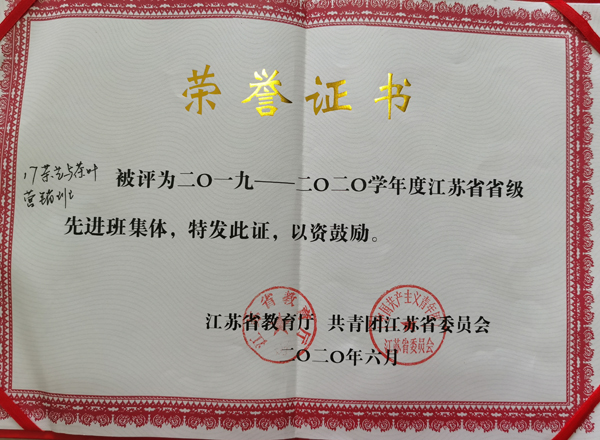 荣誉证书
17茶艺与茶叶
营销班
被评为二〇一九——二〇二〇学年度江苏省省级
先进班集体，特发此证，以资鼓励。
江苏省教育厅 共青团江苏省委员会
二〇二〇年六月
江苏省教育厅
江苏省委员会